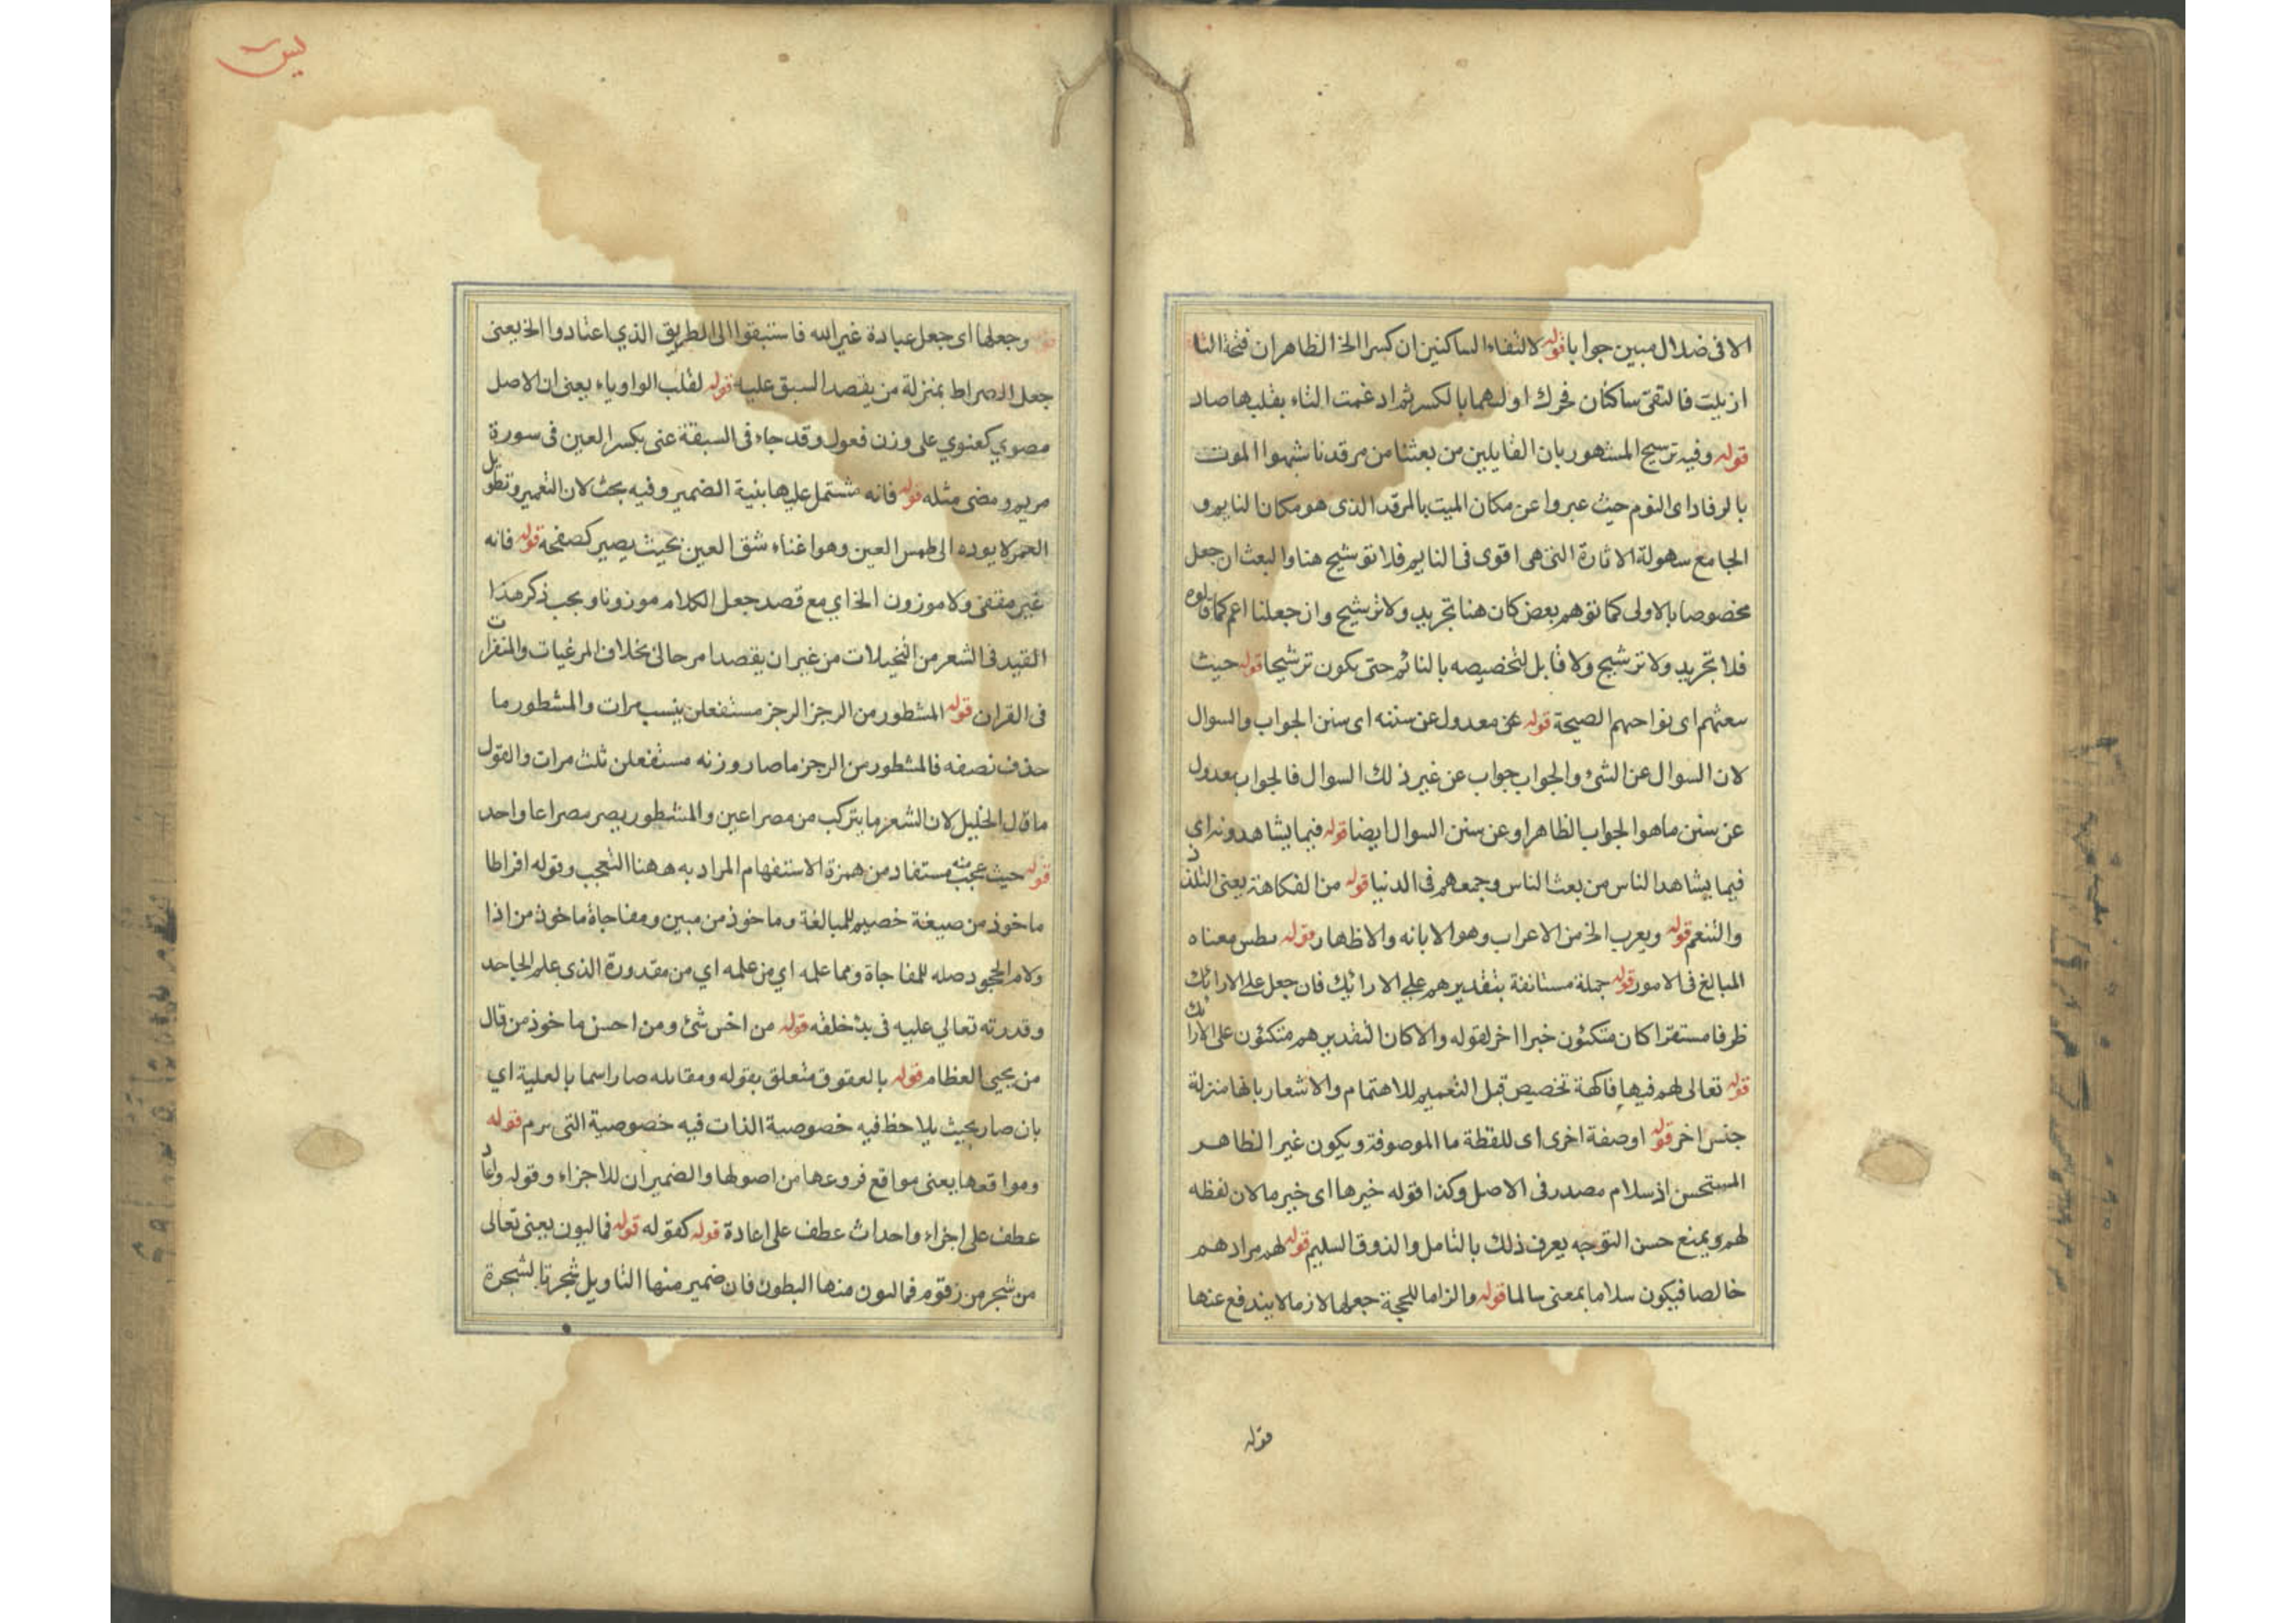 الا فى ضلال مبين جوابا قوله لالتقاء الساكنين ان كسر الخ الظاهر ان فتحة التا
ازيلت فالتقى ساكنان فحرك اولهما بالكسر ثم ادغمت التاء بقلبها صاد
قوله وفيه ترشيح المشهور بان القايلين من بعثنا من مرقدنا شبهوا الموت
بالرقاد اى النوم حيث عبروا عن مكان الميت بالمرقد الذى هو مكان النايم و
الجامع سهولة الاثارة التى هى اقوى فى النايم فلا توشيح هنا والبعث ان جعل
مخصوصا بالاولى كما توهم بعض كان هنا تجريد ولا ترشيح وان جعلنا اعم كما قالوه
فلا تجريد ولا ترشيح ولا قابل لتخصيصه بالنائم حتى يكون ترشيحا قوله حيث
بعثهم اى نواحهم الصيحة قوله عن معدول عن سننه اى سنن الجواب والسوال
لان السوال عن الشئ والجواب جواب عن غير ذلك السوال فالجواب بعدول
عن سنن ما هو الجواب الظاهر او عن سنن السوال ايضا قوله فيما يشاهدونه اي
فيما يشاهد الناس من بعث الناس وجمعهم فى الدنيا قوله من الفكاهة يعنى التلذذ
والتنعم قوله ويعرب الخ من الاعراب وهو الابانه والاظهار قوله بطس معناه
المبالغ فى الامور قوله جملة مستانفة بتقدير هم على الارائك فان جعل على الارائك
ظرفا مستقرا كان متكئون خبرا اخر لقوله والا كان التقدير هم متكئون على الارائك
قوله تعالى لهم فيها فاكهة تخصيص قبل التعميم للاهتمام والاشعار بانها منزلة
جنس اخر قوله او صفة اخرى اى للفظة ما الموصوفة ويكون غير الظاهر
المستحسن اذ سلام مصدر فى الاصل وكذا قوله خبرها اى خبر ما لان لفظه
لهم ويمنع حسن التوجه يعرف ذلك بالتامل والذوق السليم قوله لهم مرادهم
خالصا فيكون سلاما بمعنى سالما قوله والزاما للحجة جعلها لازما لا يندفع عنها
قوله
يس
قوله وجعلها اى جعل عبادة غير الله فاستبقوا الى الطريق الذي اعتادوا الخ يعنى
جعل الصراط بمنزلة من يقصد السبق عليه قوله لقلب الواو ياء يعنى ان الاصل
مضوي كعنوي على وزن فعول وقد جاء فى السبقة عنى بكسر العين فى سورة
مريم ومضى مثله قوله فانه مشتمل عليها بنية الضمير وفيه بحث لان التعمير وتطويل
العمر لا يوده الى طمس العين وهو اغناء شق العين بحيث يصير كصفحة قوله فانه
غير مقفى ولا موزون الخ اي مع قصد جعل الكلام موزونا ويجب ذكر هذا
القيد فى الشعر من التخيلات من غير ان يقصد امر حالى بخلاف المرغبات والمنفرات
فى القران قوله المشطور من الرجز الرجز مستفعلن ست مرات والمشطور ما
حذف نصفه فالمشطور من الرجز ما صار وزنه مستفعلن ثلث مرات والقول
ما قال الخليل لان الشعر ما يتركب من مصراعين والمشطور يصير مصراعا واحد
قوله حيث عجب منه مستفاد من همزة الاستفهام المراد به ههنا التعجب وقوله افراطا
ماخوذ من صيغة خصيم للمبالغة وماخوذ من مبين ومفاجاة ماخوذ من اذا
ولام الجحود صله للمفاجاة ومما علمه اي من علمه اي من مقدورة الذى علم الجاحد
وقدرته تعالي عليه فى بدئ خلقه قوله من اخس شئ ومن احسن ماخوذ من قال
من يحيى العظام قوله بالعقوق متعلق بقوله ومقابله صار اسما بالعلية اي
بان صار بحيث يلاحظ فيه خصوصية الذات فيه خصوصية التى برم قوله
ومواقعها يعنى مواقع فروعها من اصولها والضميران للاجزاء وقوله واعاد
عطف على اجزاء واحداث عطف على اعادة قوله كقوله قوله فماليون يعنى تعالى
من شجر من زقوم فماليون منها البطون فان ضمير منها التاويل شجرتا لشجرة